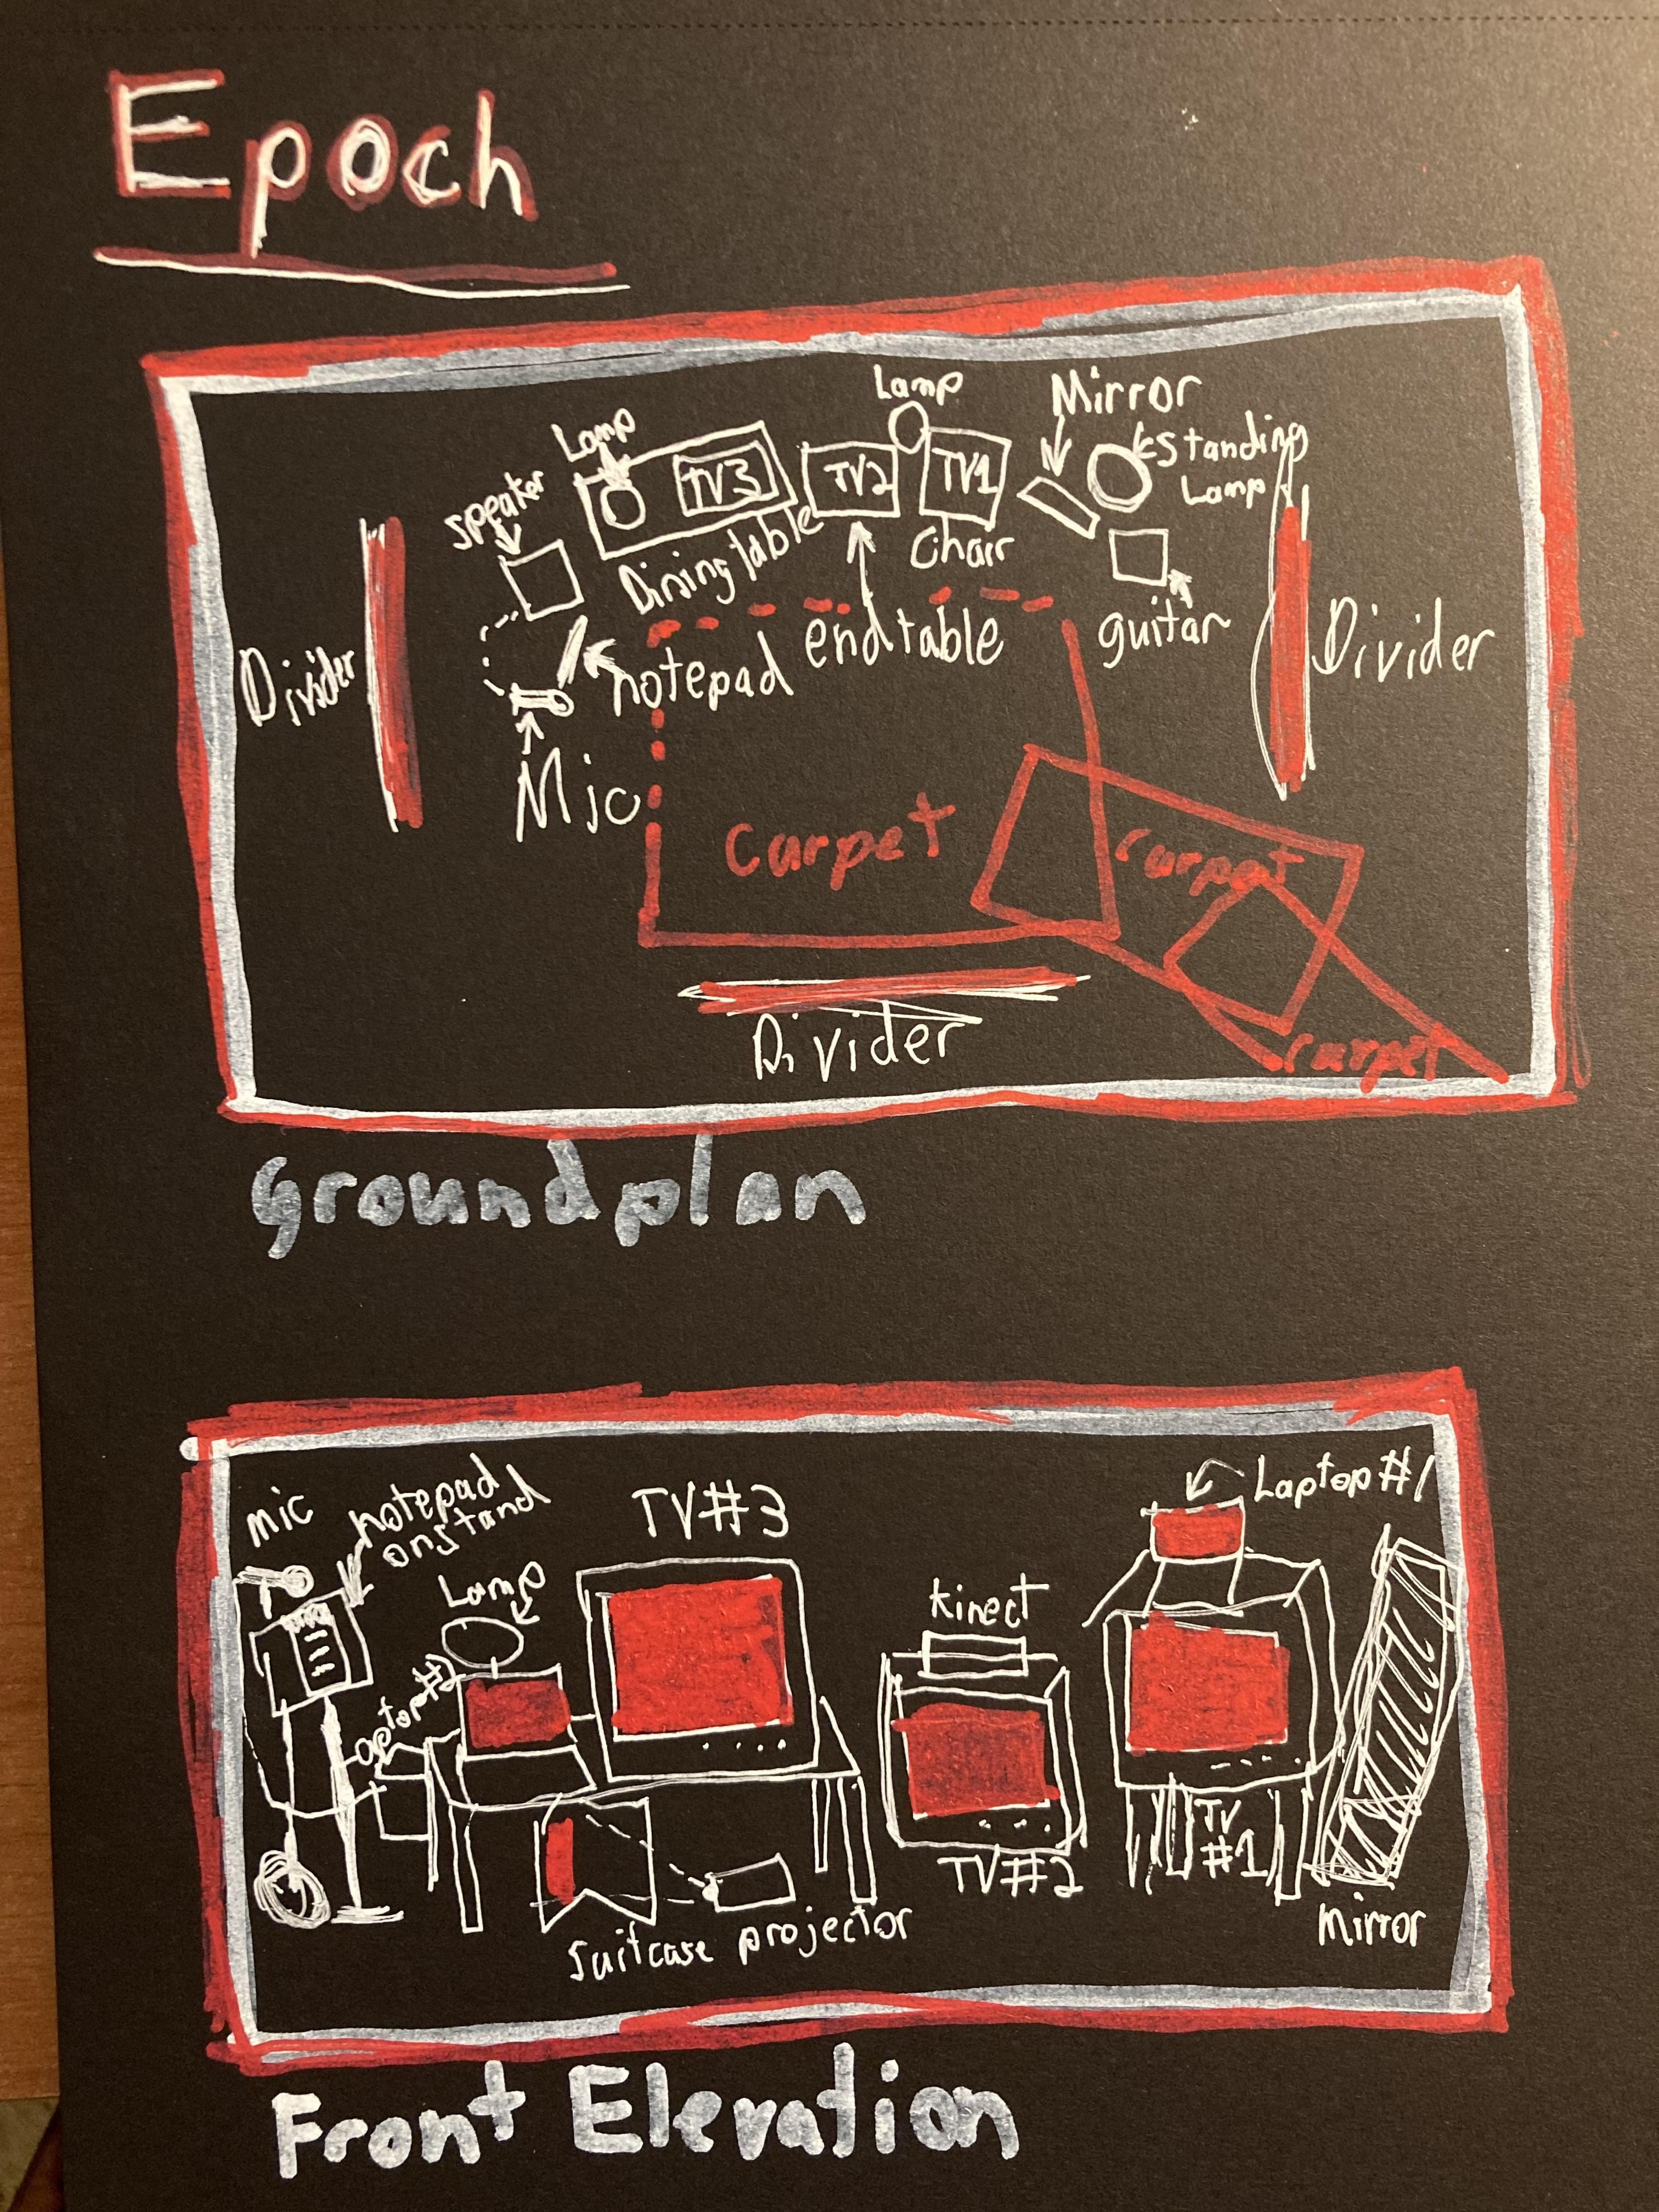 Epoch
Lamp
Mirror
Lamp
Standing
Lamp
speaker
TV3
TV2
TV1
Dining table
Chair
Divider
notepad
end table
guitar
Divider
Mic
Carpet
carpet
carpet
Divider
Groundplan
mic
notepad
on stand
TV#3
Laptop#1
Lamp
Kinect
Laptop#2
TV
#1
TV#2
Suitcase projector
mirror
Front Elevation